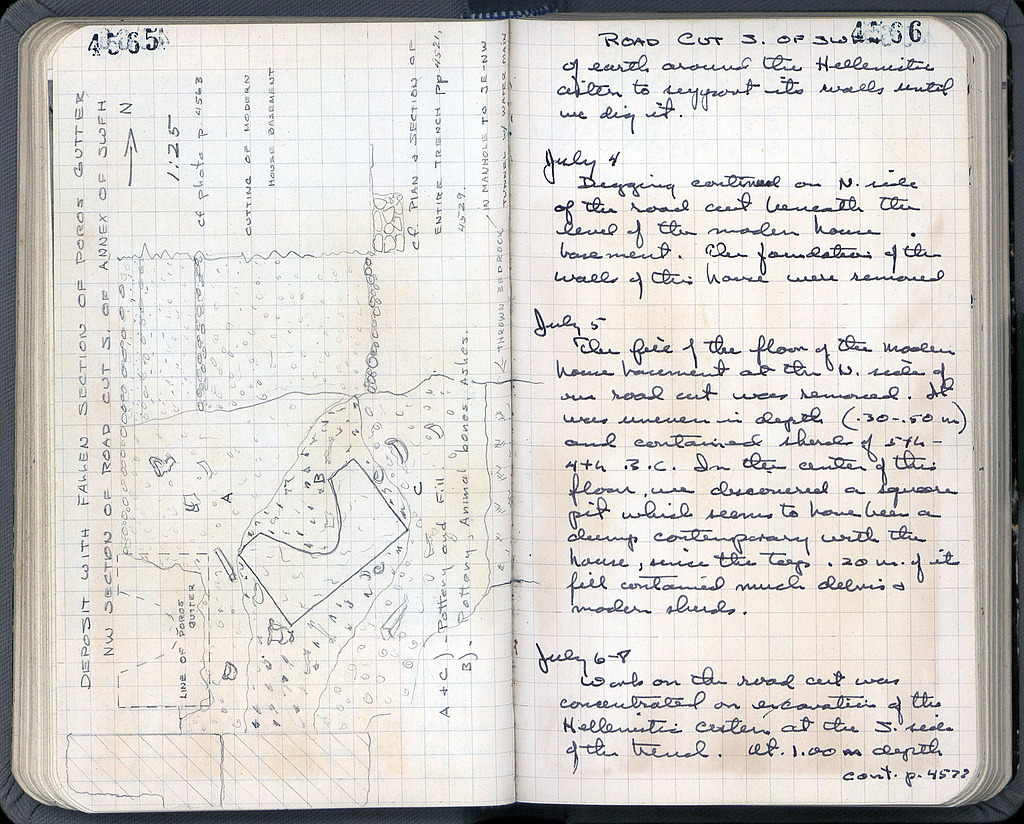 4565
DEPOSIT WITH FALLEN SECTION OF POROS GUTTER
NW SECTION OF ROAD CUT S. OF ANNEX OF SWFH
N
1:25
cf photo p 4563
CUTTING OF MODERN
HOUSE BASEMENT
cf. PLAN & SECTION OF
ENTIRE TRENCH pp 4521,
4529.
IN MANHOLE TO SE-NW
TUNNEL W/ WATER MAIN
THROWN BEDROCK
A
B
C
C
C
LINE OF POROS
GUTTER
A + C) - Pottery and Fill.
B) - Pottery, Animal bones, Ashes.
4566
ROAD CUT S. OF SWFH
of earth around the Hellenistic
cistern to support its walls until
we dig it.
July 4
Digging continued on N. side
of the road cut beneath the
level of the modern house
basement. The foundation of the
walls of this house were removed
July 5
The fill of the floor of the modern
house basement at the N. side of
our road cut was removed. It
was uneven in depth (.30-.50 m)
and contained sherds of 5th -
4th B.C. In the center of this
floor, we discovered a square
pit which seems to have been a
dump contemporary with the
house, since the top .20 m. of its
fill contained much debris &
modern sherds.
July 6-7
Work on the road cut was
concentrated on excavation of the
Hellenistic cistern at the S. side
of the trench. At 1.00 m depth
cont. p. 4572